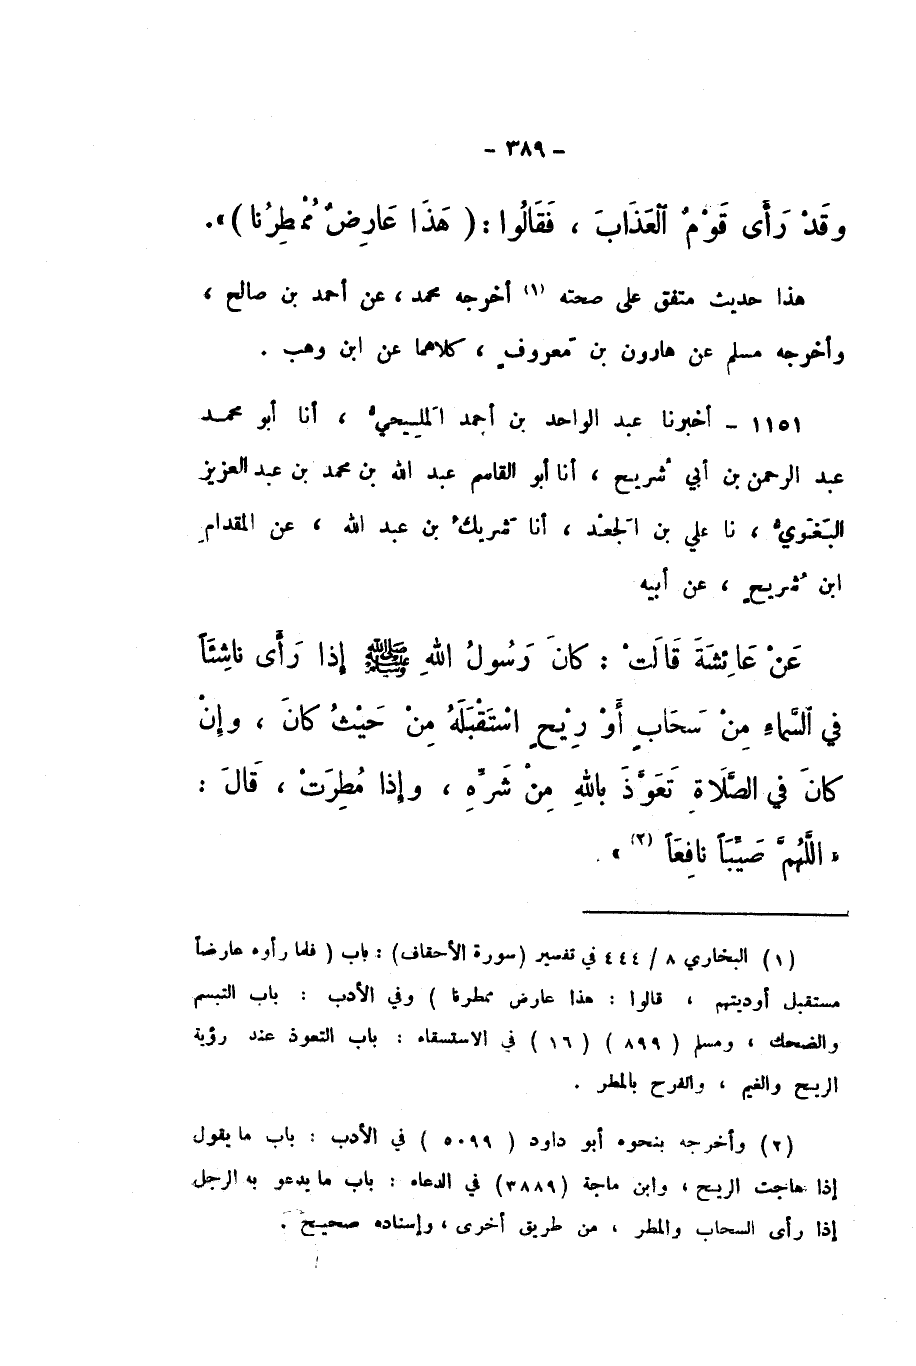 - ٣٨٩ -
وقَدْ رَأَى قَوْمٌ ٱلعَذَابَ ، فَقَالُوا : ( هَذَا عَارِضٌ مُمْطِرُنا ) ».
هذا حديث متفق على صحته (١) أخرجه محمد ، عن أحمد بن صالح ،
وأخرجه مسلم عن هارون بن مَعروفٍ ، كلاهما عن ابن وهب .
١١٥١ - أخبرنا عبد الواحد بن أحمد المَليحيُّ ، أنا أبو محمد
عبد الرحمن بن أبي شُريح ، أنا أبو القاسم عبد الله بن محمد بن عبد العزيز
البَغَويُّ ، نا علي بن الجَعْد ، أنا شَريكُ بن عبد الله ، عن المقدامِ
ابن شُريحٍ ، عن أبيه
عَنْ عَائِشَةَ قَالَتْ : كانَ رَسُولُ اللهِ ﷺ إذا رَأَى ناشِئَاً
في ٱلسَّماءِ مِنْ سَحَابٍ أَوْ رِيْحٍ اسْتَقْبَلَهُ مِنْ حَيْثُ كانَ ، وإنْ
كانَ في الصَّلَاةِ تَعَوَّذَ باللهِ مِنْ شَرِّهِ ، وإذا مُطِرَتْ ، قَالَ :
« اللَّهُمَّ صَيِّبَاً نافِعَاً (٢) » .
(١) البخاري ٨ / ٤٤٤ في تفسير (سورة الأحقاف) : باب ( فلما رأوه عارضاً
مستقبل أوديتهم ، قالوا : هذا عارض ممطرنا ) وفي الأدب : باب التبسم
والضحك ، ومسلم ( ٨٩٩ ) ( ١٦ ) في الاستسقاء : باب التعوذ عند رؤية
الريح والغيم ، والفرح بالمطر .
(٢) وأخرجه بنحوه أبو داود ( ٥٠٩٩ ) في الأدب : باب ما يقول
إذا هاجت الريح ، وابن ماجة (٣٨٨٩) في الدعاء : باب ما يدعو به الرجل
إذا رأى السحاب والمطر ، من طريق أخرى ، وإسناده صحيح .